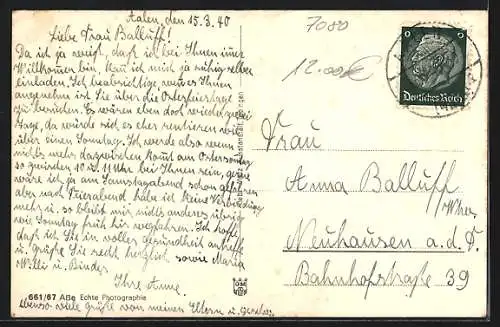 Aalen, den 15.3.40
Liebe Frau Balluff!
Da ich ja weiß, daß ich bei Ihnen immer
Willkommen bin, kann ich mich ja ruhig selber
einladen. Ich beabsichtige wenn es Ihnen
angenehm ist Sie über die Osterfeiertage
zu besuchen. Es wären eben doch wieder zwei
Tage, da würde sich es eher rentieren wie
über einen Sonntag. Ich werde also wenn
nichts mehr dazwischen kommt am Ostersonntag
so zwischen 10 u. 11 Uhr bei Ihnen sein, gerne
wäre ich ja am Samstagabend schon gefahren
aber nach Feierabend habe ich keine Verbindung
mehr u. so bleibt mir nichts anderes übrig
wie Sonntag früh hier wegfahren. Ich hoffe
daß ich Sie in voller Gesundheit antreffe
u. grüße Sie recht herzlich sowie Maria
Willi u. Bruder.
Ihre Anne.
ebenso viele Grüße von meinen Eltern u.
661/67 ABe Echte Photographie
7080
12.00 €
Deutsches Reich
Frau
Anna Balluff
Neuhausen a. d. F.
Bahnhofstraße 39